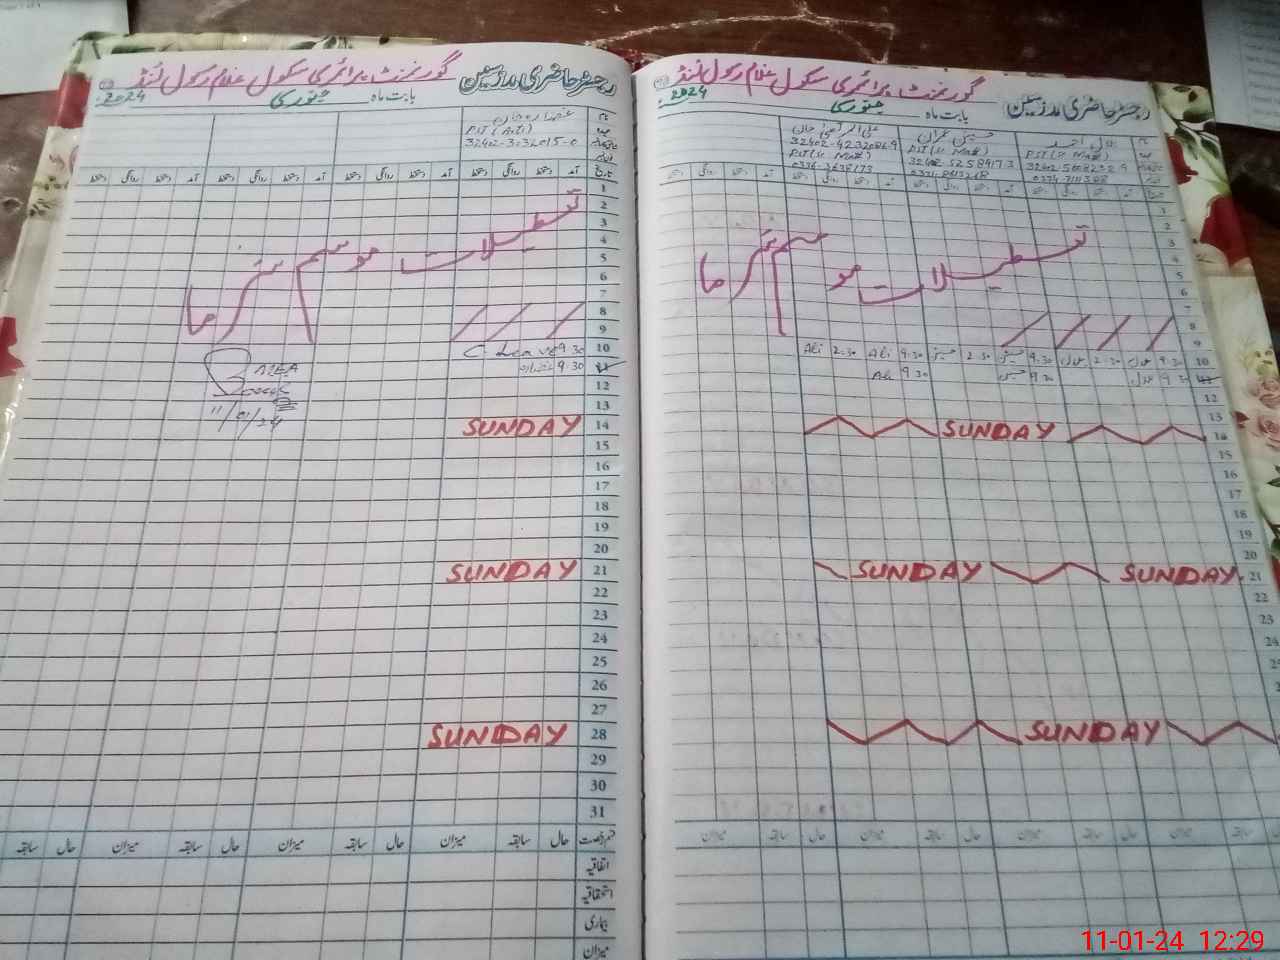 رجسٹر حاضری مدرسین گورنمنٹ پرائمری سکول غلام رسول لنڈ
بابت ماہ جنوری 2024
PST (Arti)
32402-3132015-0
تاریخ آمد دستخط روانگی دستخط آمد دستخط روانگی دستخط آمد دستخط روانگی دستخط آمد دستخط روانگی دستخط
1
2
3
تعطیلات موسم سرما
4
5
6
7
8
9
10 9.30 C Leave
11 9.30
AEA
11/01/24
12
13
14 SUNDAY
15
16
17
18
19
20
21 SUNDAY
22
23
24
25
26
27
28 SUNDAY
29
30
31
حال سابقہ میزان حال سابقہ میزان حال سابقہ میزان حال سابقہ
اتفاقیہ
استحقاقیہ
بیماری
میزان
رجسٹر حاضری مدرسین گورنمنٹ پرائمری سکول غلام رسول لنڈ
بابت ماہ جنوری 2024
بلال احمد حسین عمران
1
2
3
تعطیلات موسم سرما
4
5
6
7
8
9
10 9.30 بلال 2.30 بلال 9.30 حسین 2.30 حسین 9.30 Ali 2.30 Ali
11 9.30 بلال 9.30 حسین 9.30 Ali
12
13
14 SUNDAY
15
16
17
18
19
20
21 SUNDAY SUNDAY
22
23
24
25
SUNDAY
حال سابقہ میزان حال سابقہ میزان حال سابقہ میزان
11-01-24 12:29